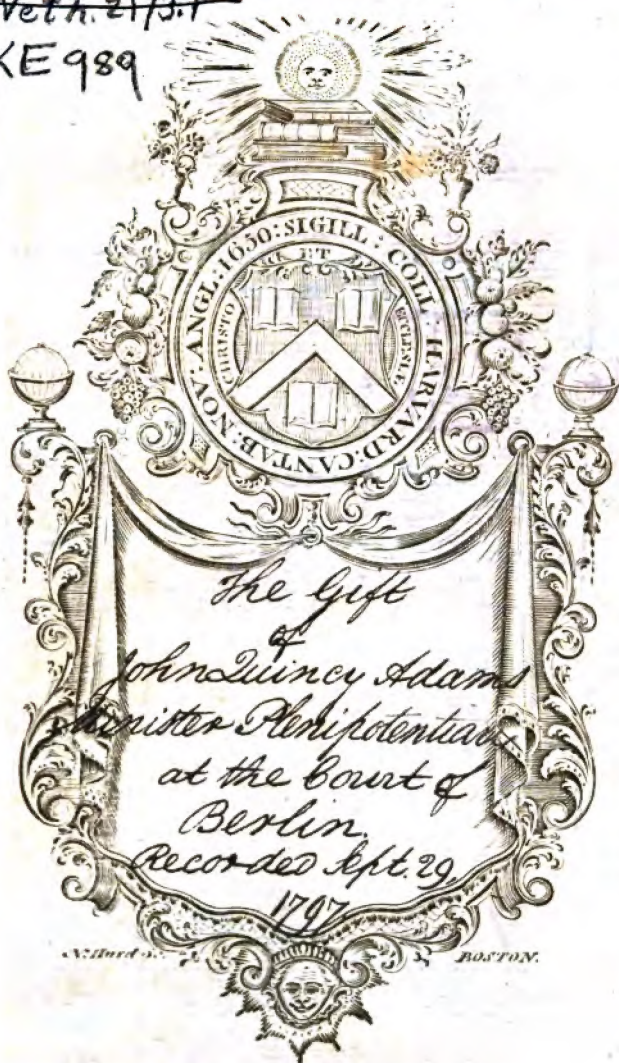 Neth. 21/5.1
KE 989
SIGILL : COLL : HARVARD : CANTAB : NOV : ANGL : 1650 :
ET
CHRISTO
ECCLESIÆ
The Gift
of
John Quincy Adams
Minister Plenipotentiary
at the Court of
Berlin.
Recorded Sept. 29,
1797
N. Hurd
BOSTON.